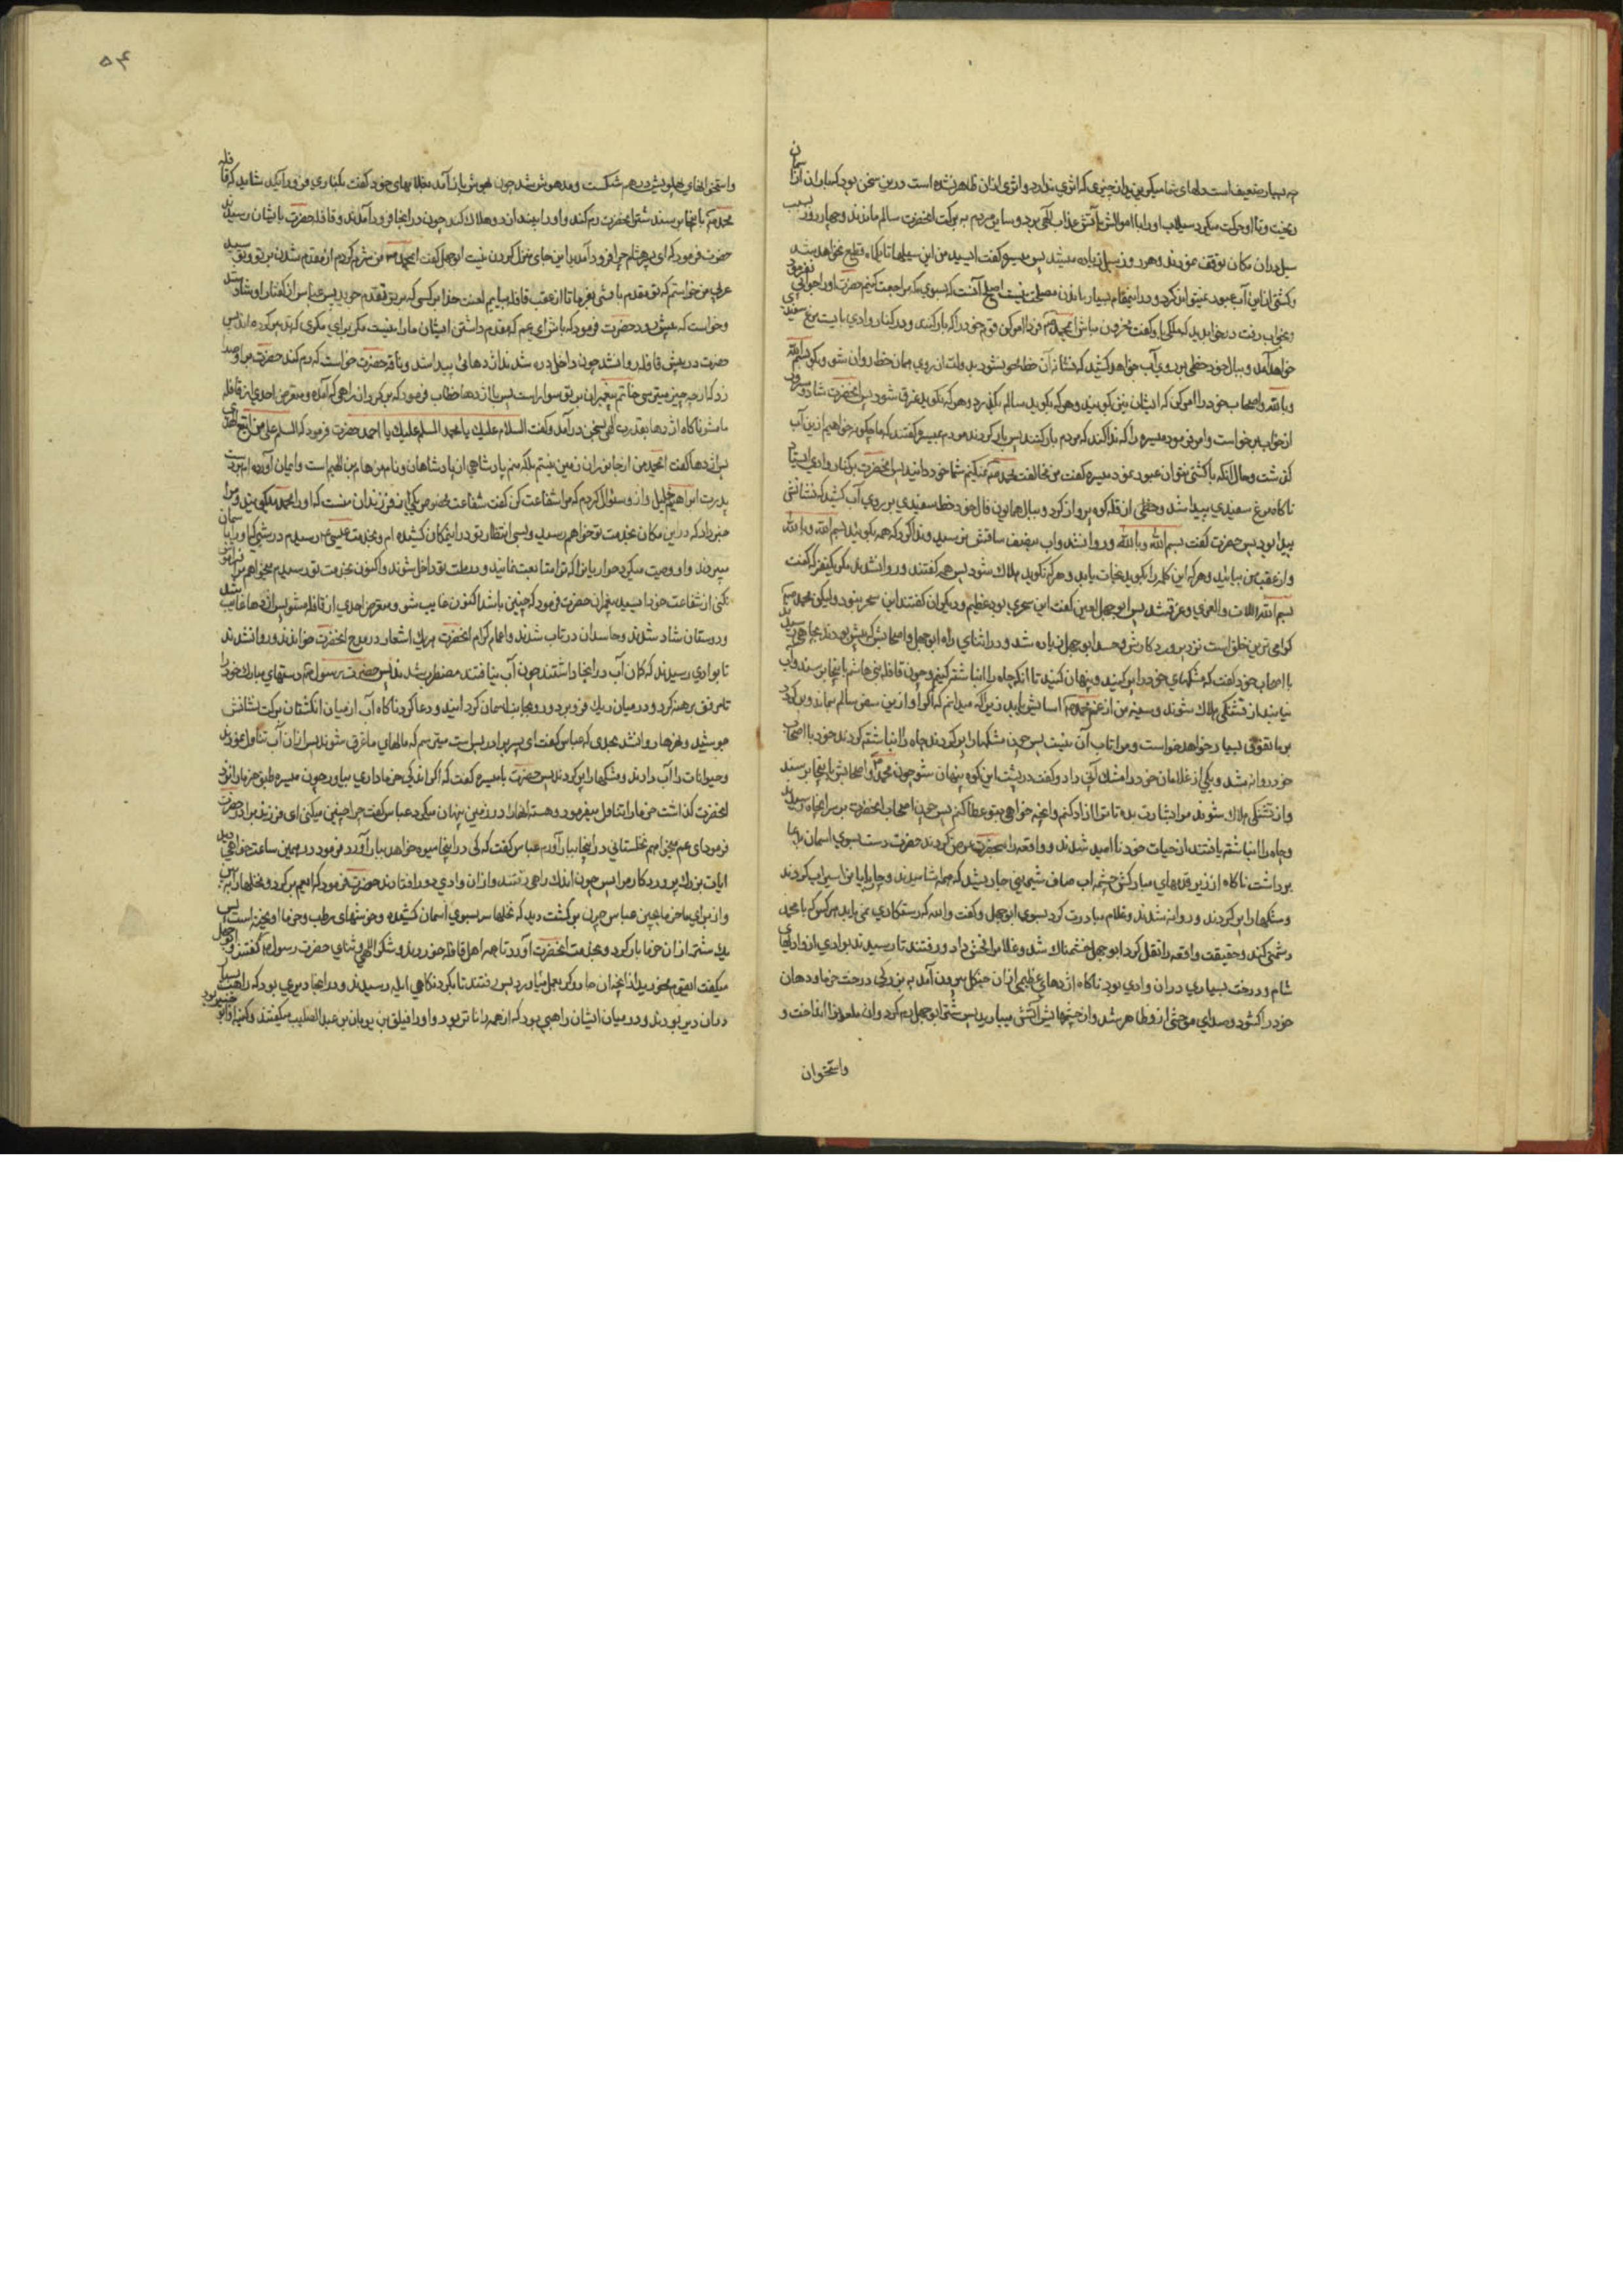 چه بسیار ضعیف است دلهای شما میگریزید از چیزی که اثری ندارد و اثری از آن ظاهر نشده است درین سخن بود که باران از آسمان
ریخت و تا او حرکت میکرد سیلاب او را با اموالش بآتش عذاب الهی برد و سایر مردم به برکت آنحضرت سالم ماندند و چهار روز بسبب
سیل در آن مکان توقف نمودند و هر روز سیل زیاده میشد پس میسره گفت ای سید من این سیلها تا یکماه قطع نخواهد شد
و کشتی از این آب عبور نمیتوان کرد و در اینمقام بسیار ماندن مصلحت نیست اصلح آنست که بسوی مکه مراجعت کنیم حضرت او را جوابی نفرمود
و بخواب رفت در خواب دید که ملکی با او گفت محزون مباش ای محمد ص فردا امر کن قوم خود را که بار کنند و در کنار وادی بایست مرغ سفیدی
خواهد آمد و ببال خود خطی بر روی آب خواهد کشید که نشانه آن خط محو نشود بدولت از روی همان خط روان شو و بگو بسم الله
و بالله و اصحاب خود را امر کن که ایشان نیز بگویند و هر که بگوید سالم بگذرد و هر که نگوید غرق شود پس آنحضرت شاد و مسرور
از خواب برخواست و امر فرمود میسره را که ندا کند که مردم بار کنند پس بار کردند مردم میسره گفتند که ما چگونه خواهیم از این آب
گذشت و حال آنکه با کشتی نتوان عبور نمود میسره گفت من مخالفت محمد ص نمیکنم شما خود دانید پس آنحضرت بر کنار وادی ایستاد
ناگاه مرغ سفیدی پیدا شد و خطی از قله کوه پرواز کرد و ببال همایون فال خود خط سفیدی بر روی آب کشید که نشانش
پیدا بود پس حضرت گفت بسم الله و بالله و روانه شد و آب بنصف ساقش نرسید و ندا کرد که همه بگوئید بسم الله و بالله
و از عقب من بیایید و هر که این کلمه را بگوید نجات یابد و هر که نگوید هلاک شود پس همه گفتند و روانه شدند مگر یکنفر که گفت
بسم اللات والعزی و غرق شد پس ابوجهل لعین گفت این سحری بود عظیم و دیگران گفتند این سحر نبود و لیکن محمد ص
گرامی ترین خلق است نزد پروردگارش و حسد ابوجهل زیاده شد و در اثنای راه ابوجهل و اصحابش که پیش بودند بچاهی رسیدند
با اصحاب خود گفت که مشکهای خود را پر کنید و پنهان کنید تا آنکه چاه را انباشته کنیم و چون قافله بنی هاشم باینجا برسند و آب
نیابند از تشنگی هلاک شوند و سینه من از غم محمد ص آسایش یابد زیرا که میدانم که اگر او ازین سفر سالم بماند و برگردد
بر ما تفوق بسیار خواهد خواست و مرا تاب آن نیست پس چون مشکها را پر کردند چاه را انباشته کردند خود با اصحاب
خود روانه شد و یکی از غلامان خود را مشک آبی داد و گفت در پشت این کوه پنهان شو چون محمد و اصحابش باینجا برسند
و از تشنگی هلاک شوند مرا بشارت بده تا ترا آزاد کنم و آنچه خواهی بتو عطا کنم پس چون اصحاب آنحضرت بر سر آنچاه رسیدند
و چاه را انباشته یافتند از حیات خود نا امید شدند و واقعه را بحضرت عرض کردند حضرت دست بسوی آسمان بدعا
برداشت ناگاه از زیر قدمهای مبارکش چشمه آب صاف شیرینی جاری شد که همه آشامیدند و چارپایان را سیراب کردند
و مشکها را پر کردند و روانه شدند و غلام مبادرت کرد بسوی ابوجهل و گفت والله که رستگاری نمی یابد هر کس که با محمد
دشمنی کند و حقیقت واقعه را نقل کرد ابوجهل خشمناک شد و غلام را فحش داد و رفتند تا رسیدند بوادی از وادیهای
شام و درخت بسیاری در آن وادی بود ناگاه اژدهای عظیمی از آن جنگل بیرون آمد به بزرگی درخت خرما و دهان
خود را گشود و صدای موحشی از و ظاهر شد و از چشمهایش آتش میبارید پس شتر ابوجهل رم کرد و آن ملعون را انداخت و
واستخوان
۵۴
و استخوانهای پهلویش در هم شکست و مدهوش شد چون بهوش باز آمد بغلامهای خود گفت بکناری فرود آیید شاید که قافله
محمد ص باینجا برسند شتر آنحضرت رم کند و او را بیندازد و هلاک کند چون در آنجا فرود آمدند و قافله حضرت بایشان رسیدند
حضرت فرمود که ای پسر هشام چرا فرود آمده باین جای منزل کردن نیست ابوجهل گفت ای محمد ص من شرم کردم از مقدم شدن بر تو و تو سید
عربی من خواستم که تو مقدم باشی بفرما تا از عقب قافله بیایم لعنت خدا بر کسی که بر تو تقدم جوید پس عباس از گفتار او شاد شد
و خواست که پیش رود حضرت فرمود که باش ای عم که مقدم داشتن ایشان ما را نیست مگر برای مکری که تدبیر کرده اند پس
حضرت در پیش قافله روانه شد چون داخل دره شدند اژدهائی پیدا شد و ناقه حضرت خواست که رم کند حضرت بر او صدا
زد که از چه چیز میترسی خاتم پیغمبران بر تو سوار است پس با اژدها خطاب فرمود که برگرد از راهی که آمده و متعرض احدی از قافله
ما مشو ناگاه اژدها بقدرت الهی بسخن در آمد و گفت السلام علیک یا محمد السلام علیک یا احمد حضرت فرمود که السلام علی من اتبع الهدی
پس اژدها گفت ای محمد من از جانوران زمین نیستم بلکه منم پادشاهی از پادشاهان جن و نام من هام بن الهیم است و ایمان آورده ام بردست
پدرت ابراهیم خلیل و از و سئوال کردم که مرا شفاعت کن گفت شفاعت مخصوص یکی از فرزندان منست که او را محمد میگویند و مرا
خبر داد که در این مکان بخدمت تو خواهم رسید و بسی انتظار تو در اینمکان کشیده ام و بخدمت عیسی ع رسیدم در شبی که او را بآسمان
میبردند و او وصیت میکرد حواریان را که ترا متابعت نمایند و در ملت تو داخل شوند و اکنون بخدمت تو رسیدم میخواهم مرا فراموش
نکنی از شفاعت خود ای سید پیغمبران حضرت فرمود که چنین باشد اکنون غایب شو و متعرض احدی از قافله مشو پس اژدها غایب شد
و دوستان شاد شدند و حاسدان در تاب شدند و اعمام کرام آنحضرت هریک اشعار در مدح آنحضرت خواندند و روانه شدند
تا بوادی رسیدند که گمان آب در آنجا داشتند چون آب نیافتند مضطرب شدند پس حضرت رسول ص دستهای مبارک خود را
تا مرفق برهنه کرد و در میان ریگ فرو برد و رو بجانب آسمان گردانید و دعا کرد ناگاه آب از میان انگشتان برکت نشانش
جوشید و نهرها روانه شد بحدی که عباس گفت ای پسر برادر بس است میترسم که مالهای ما غرق شوند پس از آن آب تناول نمودند
و حیوانات را آب دادند و مشکها را پر کردند پس حضرت با میسره گفت که اگر اندکی خرما داری بیاور چون میسره طبق خرما را نزد
آنحضرت گذاشت خرما را تناول میفرمود و هسته آنها را در زمین پنهان میکرد عباس گفت چرا چنین میکنی ای فرزند برادر حضرت
فرمود ای عم میخواهم نخلستانی در اینجا ببار آورم عباس گفت که کی در اینجا میوه خواهد ببار آورد فرمود در همین ساعت خواهی دید
آیات بزرگ پروردگار مرا پس چون اندک راهی رفتند و از آن وادی دور افتادند حضرت فرمود که ای عم برگرد و نخلها را ببین
و از برای ما خرما بچین عباس چون برگشت دید که نخلها سر بسوی آسمان کشیده و خوشهای رطب و خرما آویخته است پس
یک شتر از آن خرما بار کرد و بخدمت آنحضرت آورد تا همه اهل قافله خوردند و شکر الهی و ثنای حضرت رسول ص گفتند و ابوجهل
میگفت ای قوم مخورید از آنچه آن جادوگر بعمل میاورد پس رفتند تا بگردنگاهی ایله رسیدند و در آنجا دیری بود که راهب بسیار
در آن دیر بودند و در میان ایشان راهبی بود که از همه داناتر بود و او را فیلق بن یونان بن عبد الصلیب میگفتند و کنیه او ابو خبیر بود